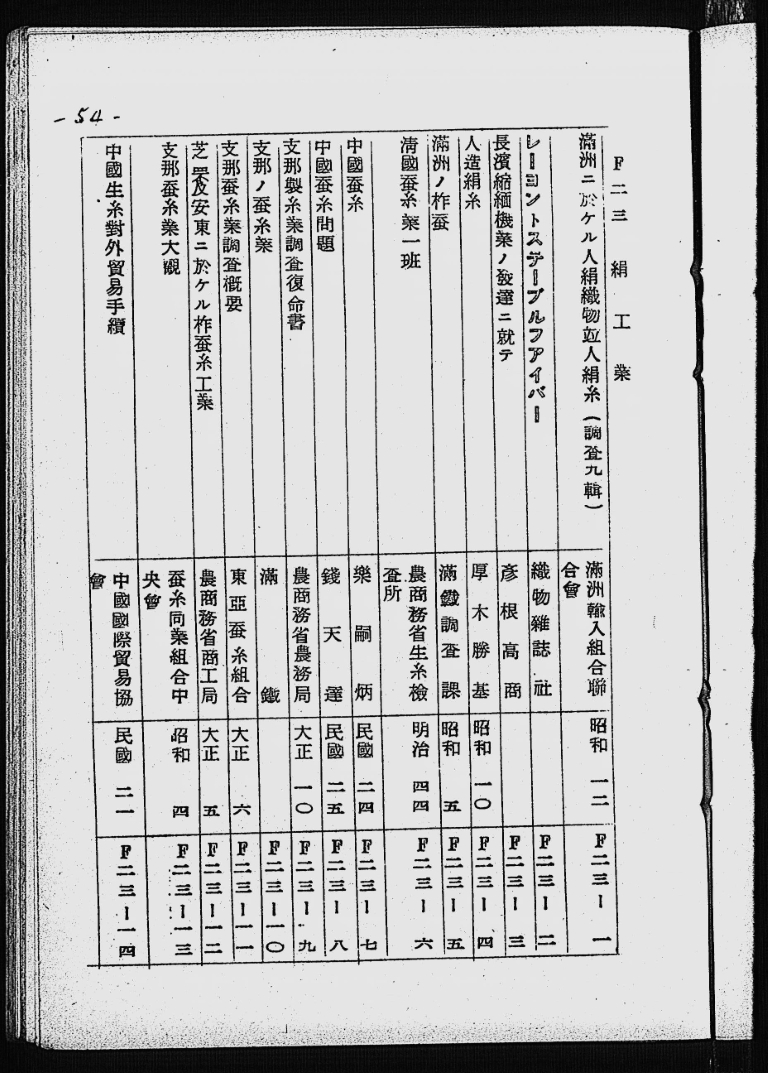 - 54 -
F二三 絹工業
滿洲ニ於ケル人絹織物竝人絹糸(調査九輯) 滿洲輸入組合聯合會 昭和一二 F二三ー一
レーヨントステープルフアイバー 織物雜誌社 F二三ー二
長濱縮緬機業ノ發達ニ就テ 彥根高商 F二三ー三
人造絹糸 厚木勝基 昭和一〇 F二三ー四
滿洲ノ柞蚕 滿鐵調査課 昭和五 F二三ー五
淸國蚕糸業一班 農商務省生糸檢査所 明治四四 F二三ー六
中國蚕糸 樂嗣炳 民國二四 F二三ー七
中國蚕糸問題 錢天達 民國二五 F二三ー八
支那製糸業調査復命書 農商務省農務局 大正一〇 F二三ー九
支那ノ蚕糸業 滿鐵 F二三ー一〇
支那蚕糸業調査概要 東亞蚕糸組合 大正六 F二三ー一一
芝罘及安東ニ於ケル柞蚕糸工業 農商務省商工局 大正五 F二三ー一二
支那蚕糸業大觀 蚕糸同業組合中央會 昭和四 F二三ー一三
中國生糸對外貿易手續 中國國際貿易協會 民國二一 F二三ー一四